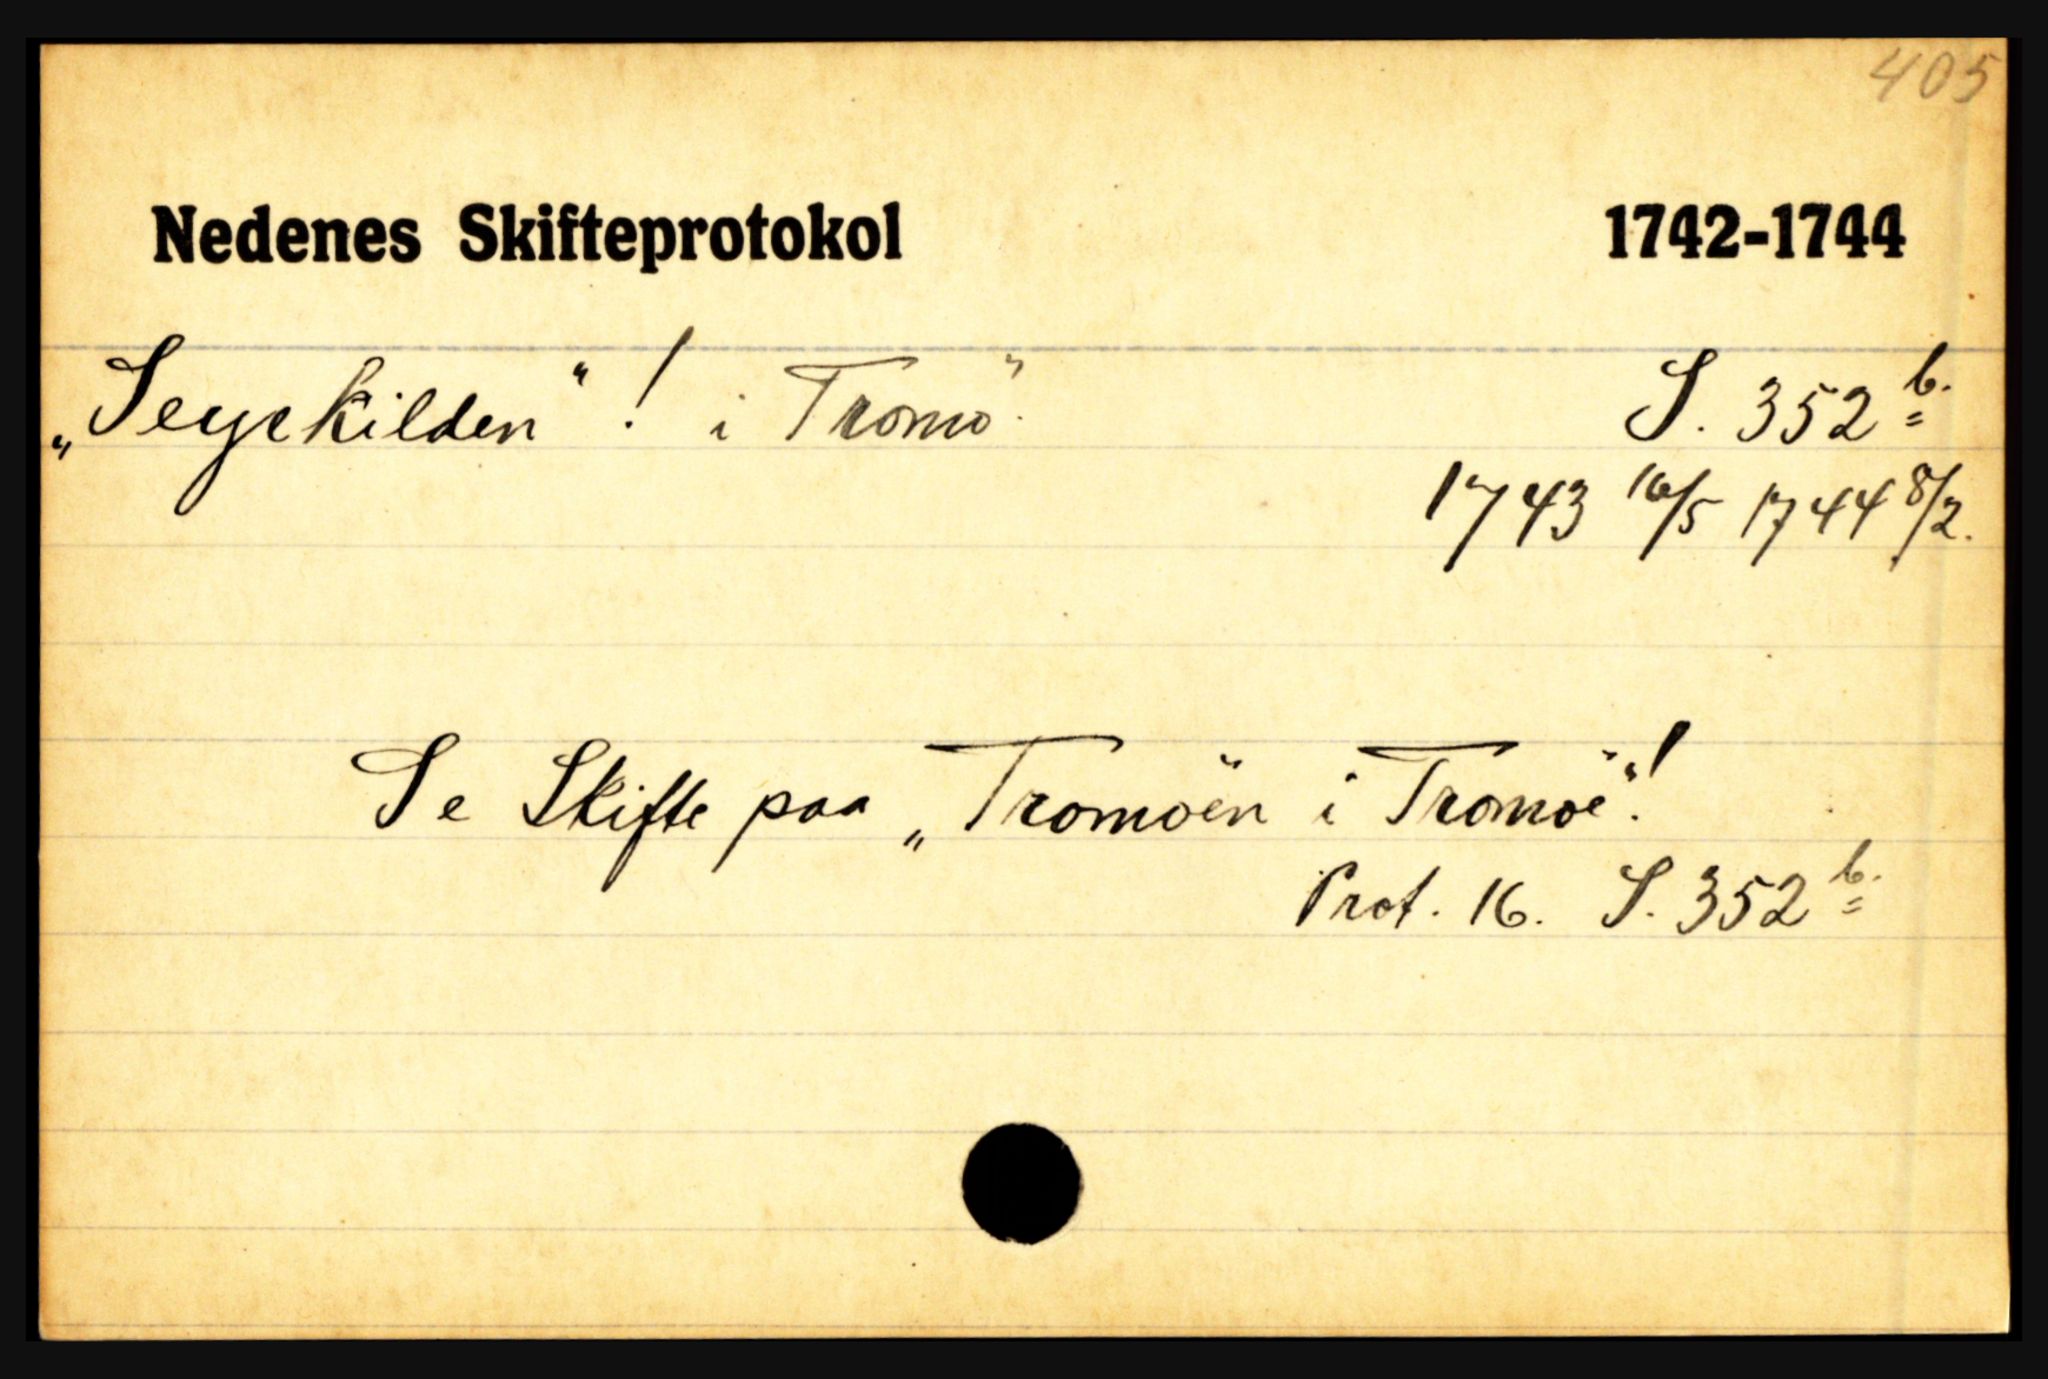 405
Nedenes Skifteprotokol 1742-1744
„Seyekilden“! i Tromö. S. 352 b.
1743 16/5 1744 8/2.
Se Skifte paa „Tromöen i Tromöe“!
Prot. 16. S. 352 b.